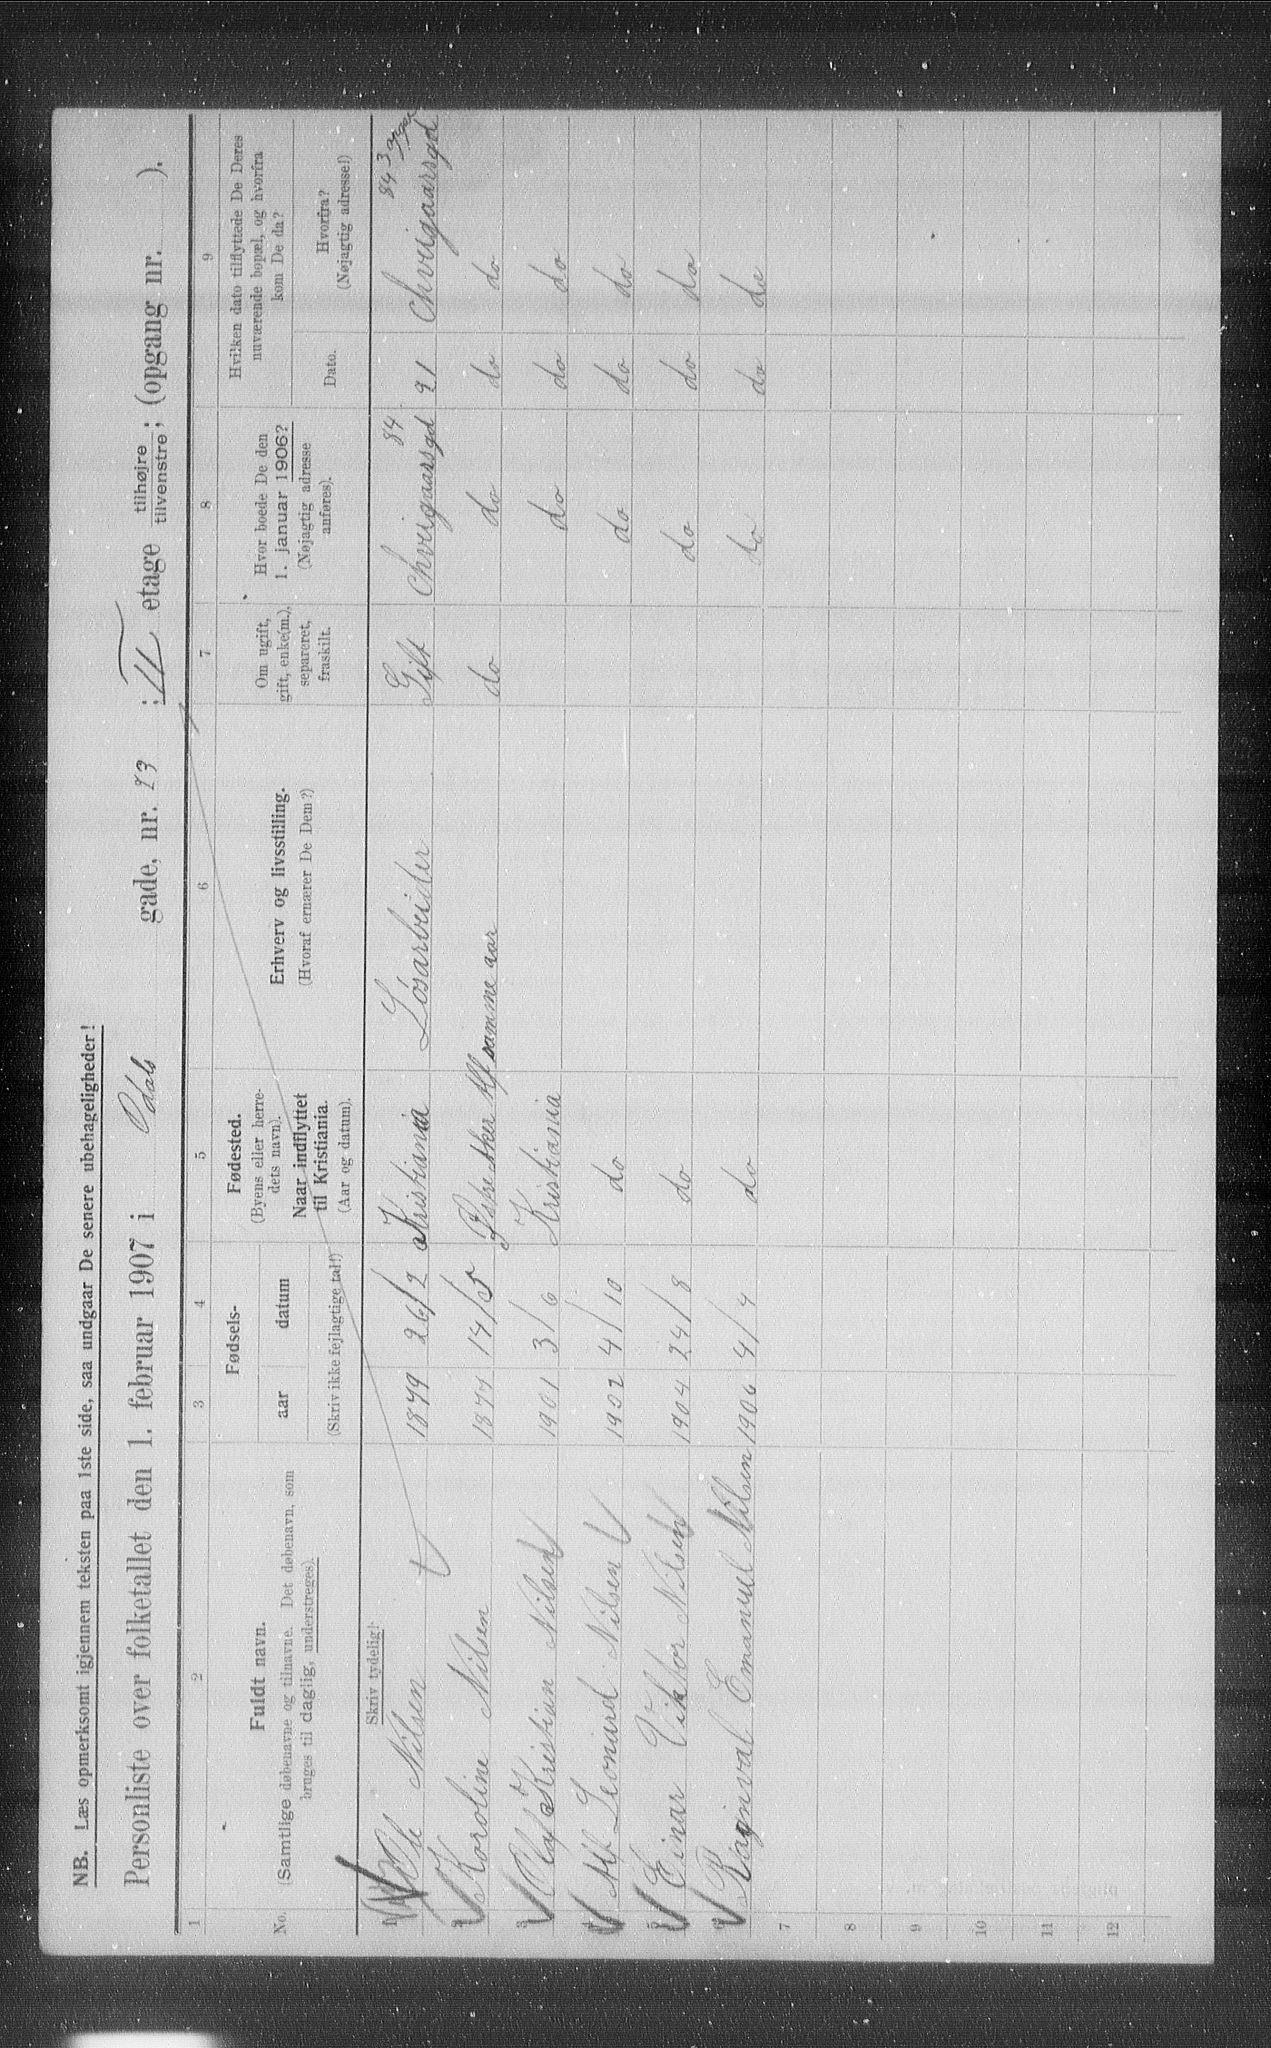 NB. Læs opmerksomt igjennem teksten paa 1ste side, saa undgaar De senere ubehageligheder!
Personliste over folketallet den 1. februar 1907 i Odals gade, nr. 23 ; II etage tilhøjre tilvenstre; (opgang nr. ).
1 2 3 4 5 6 7 8 9
No.
Fuldt navn.
(Samtlige døbenavne og tilnavne. Det døbenavn, som
bruges til daglig, understreges).
Fødsels-
aar datum
(Skriv ikke fejlagtige tal!)
Fødested.
(Byens eller herre-
dets navn).
Naar indflyttet
til Kristiania.
(Aar og datum).
Erhverv og livsstilling.
(Hvoraf ernærer De Dem?)
Om ugift,
gift, enke(m.),
separeret,
fraskilt.
Hvor boede De den
1. januar 1906?
(Nøjagtig adresse
anføres).
Hvilken dato tilflyttede De Deres
nuværende bopæl, og hvorfra
kom De da?
Dato.
Hvorfra?
(Nøjagtig adresse!)
Skriv tydelig!
1 Ole Nilsen 1879 26/2 Kristiania Løsarbeider Gift Schweigaarsgd 84 21 Schweigaarsgd 84
2 Karoline Nilsen 1877 14/5 Østre Aker samme aar do do do do
3 Olaf Kristian Nilsen 1901 3/6 Kristiania do do do
4 Alf Leonard Nilsen 1902 4/10 do do do do
5 Einar Viktor Nilsen 1904 24/8 do do do do
6 Raginval Emanuel Nilsen 1906 4/4 do do do do
7
8
9
10
11
12